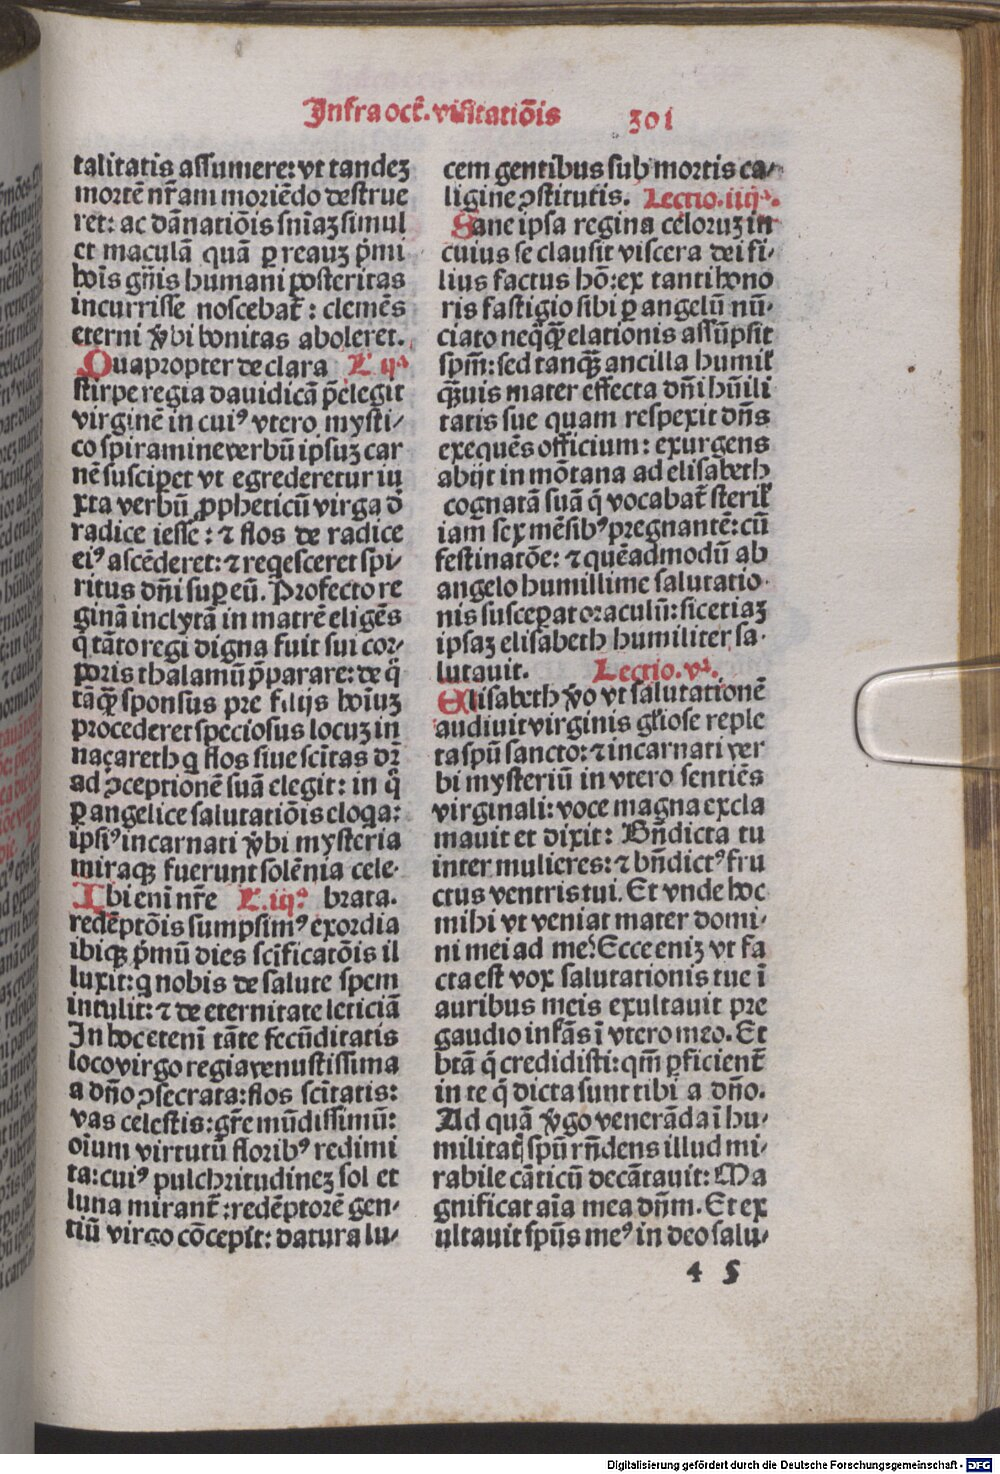 Infra oct̄. visitatiōis 301
talitatis assumere: vt tandeꝫ
mortē nr̄am moriēdo destrue
ret: ac dānatiōis sn̄iaꝫ simul
et maculā quā ꝑ reauꝫ p̄mi
hoīs gn̄is humani posteritas
incurrisse noscebat̄: clemēs
eterni v̾bi bonitas aboleret.
Quapropter de clara L ij⁹
stirpe regia dauidicā p̄elegit
virginē in cuiꝰ vtero mysti⸗
co spiramine verbū ipsuꝫ car
nē susciperet vt egrederetur iu
xta verbū ꝓpheticū virga d̄
radice iesse: ⁊ flos de radice
eiꝰ ascēderet: ⁊ reqesceret spi⸗
ritus dn̄i suꝑ eū. Profecto re
ginā inclytā in matrē eligēs
q̄ tāto regi digna fuit sui cor⸗
poris thalamū p̄parare: de q̄
tāqꝫ̄ sponsus pre filijs hoīuꝫ
procederet speciosus locuꝫ in
naçareth q flos siue scītas dr̄
ad ꝯceptionē suā elegit: in q̄
ꝑ angelice salutatiōis eloqa:
ipsiꝰ incarnati v̾bi mysteria
miraqꝫ fuerunt solēnia cele⸗
Ibi eni nr̄e L. iij⁹ brata.
redēptōis sumpsimꝰ exordia
ibiqꝫ p̄mū dies scīficatōis il
luxit: q nobis de salute spem
intulit: ⁊ de eternitate leticiā
In hoc etenī tāte fecūditatis
loco virgo regia venustissima
a dn̄o ꝯsecrata: flos scītatis:
vas celestis: gr̄e mūdissimū:
oīum virtutū floribꝰ redimi
ta: cuiꝰ pulchritudineꝫ sol et
luna mirant̄: redēptorē gen⸗
tiū virgo cōcepit: datura lu⸗
cem gentibus sub mortis ca⸗
ligine ꝯstitutis. Lectio. iiij⁹.
Sane ipsa regina celoruꝫ in
cuius se clausit viscera dei fi⸗
lius factus hō: ex tanti hono
ris fastigio sibi ꝑ angelū nū⸗
ciato neq̄qꝫ̄ elationis assūpsit
spm̄: sed tanqꝫ̄ ancilla humil̄
qꝫ̄uis mater effecta dn̄i hūili
tatis sue quam respexit dn̄s
exequēs officium: exurgens
abijt in mōtana ad elisabeth
cognatā suā q̄ vocabat̄ steril̄
iam sex mēsibꝰ pregnantē: cū
festinatōe: ⁊ quēadmodū ab
angelo humillime salutatio⸗
nis susceꝑat oraculū: sic etiaꝫ
ipsaꝫ elisabeth humiliter sa⸗
lutauit. Lectio. v⁹.
Elisabeth v̾o vt salutationē
audiuit virginis gl̄iose reple
ta spū sancto: ⁊ incarnati ver
bi mysteriū in vtero sentiēs
virginali: voce magna excla
mauit et dixit: Bn̄dicta tu
inter mulieres: ⁊ bn̄dictꝰ fru
ctus ventris tui. Et vnde hoc
mihi vt veniat mater domi⸗
ni mei ad me? Ecce eniꝫ vt fa
cta est vox salutationis tue ī
auribus meis exultauit pre
gaudio infās ī vtero meo. Et
btā q̄ credidisti: qm̄ ꝑficient̄
in te q̄ dicta sunt tibi a dn̄o.
Ad quā v̾go venerāda ī hu⸗
militat̄ spū rn̄dens illud mi⸗
rabile cāticū decātauit: Ma
gnificat aīa mea dn̄m. Et ex
ultauit spūs meꝰ in deo salu⸗
4 S
Digitalisierung gefördert durch die Deutsche Forschungsgemeinschaft - DFG